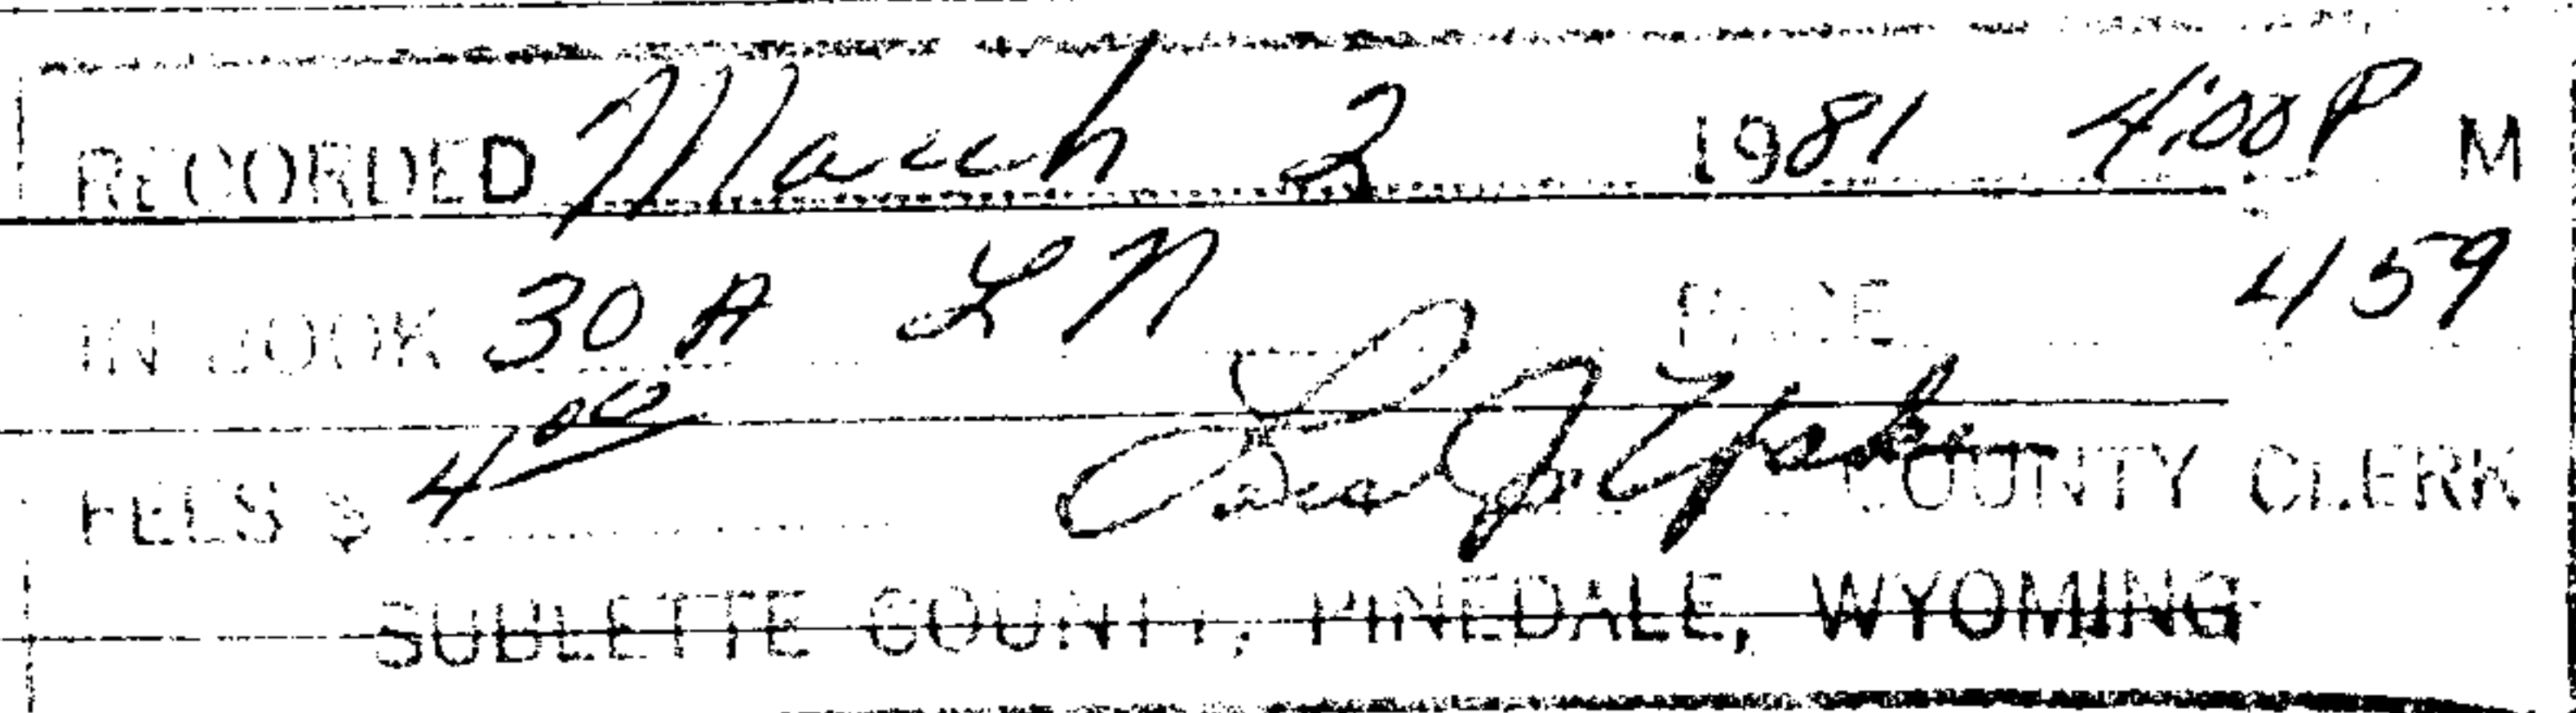 RECORDED March 2 1981 4:00 P M
IN BOOK 30 A PAGE 459
FEES $ 4 00 COUNTY CLERK
SUBLETTE COUNTY, PINEDALE, WYOMING